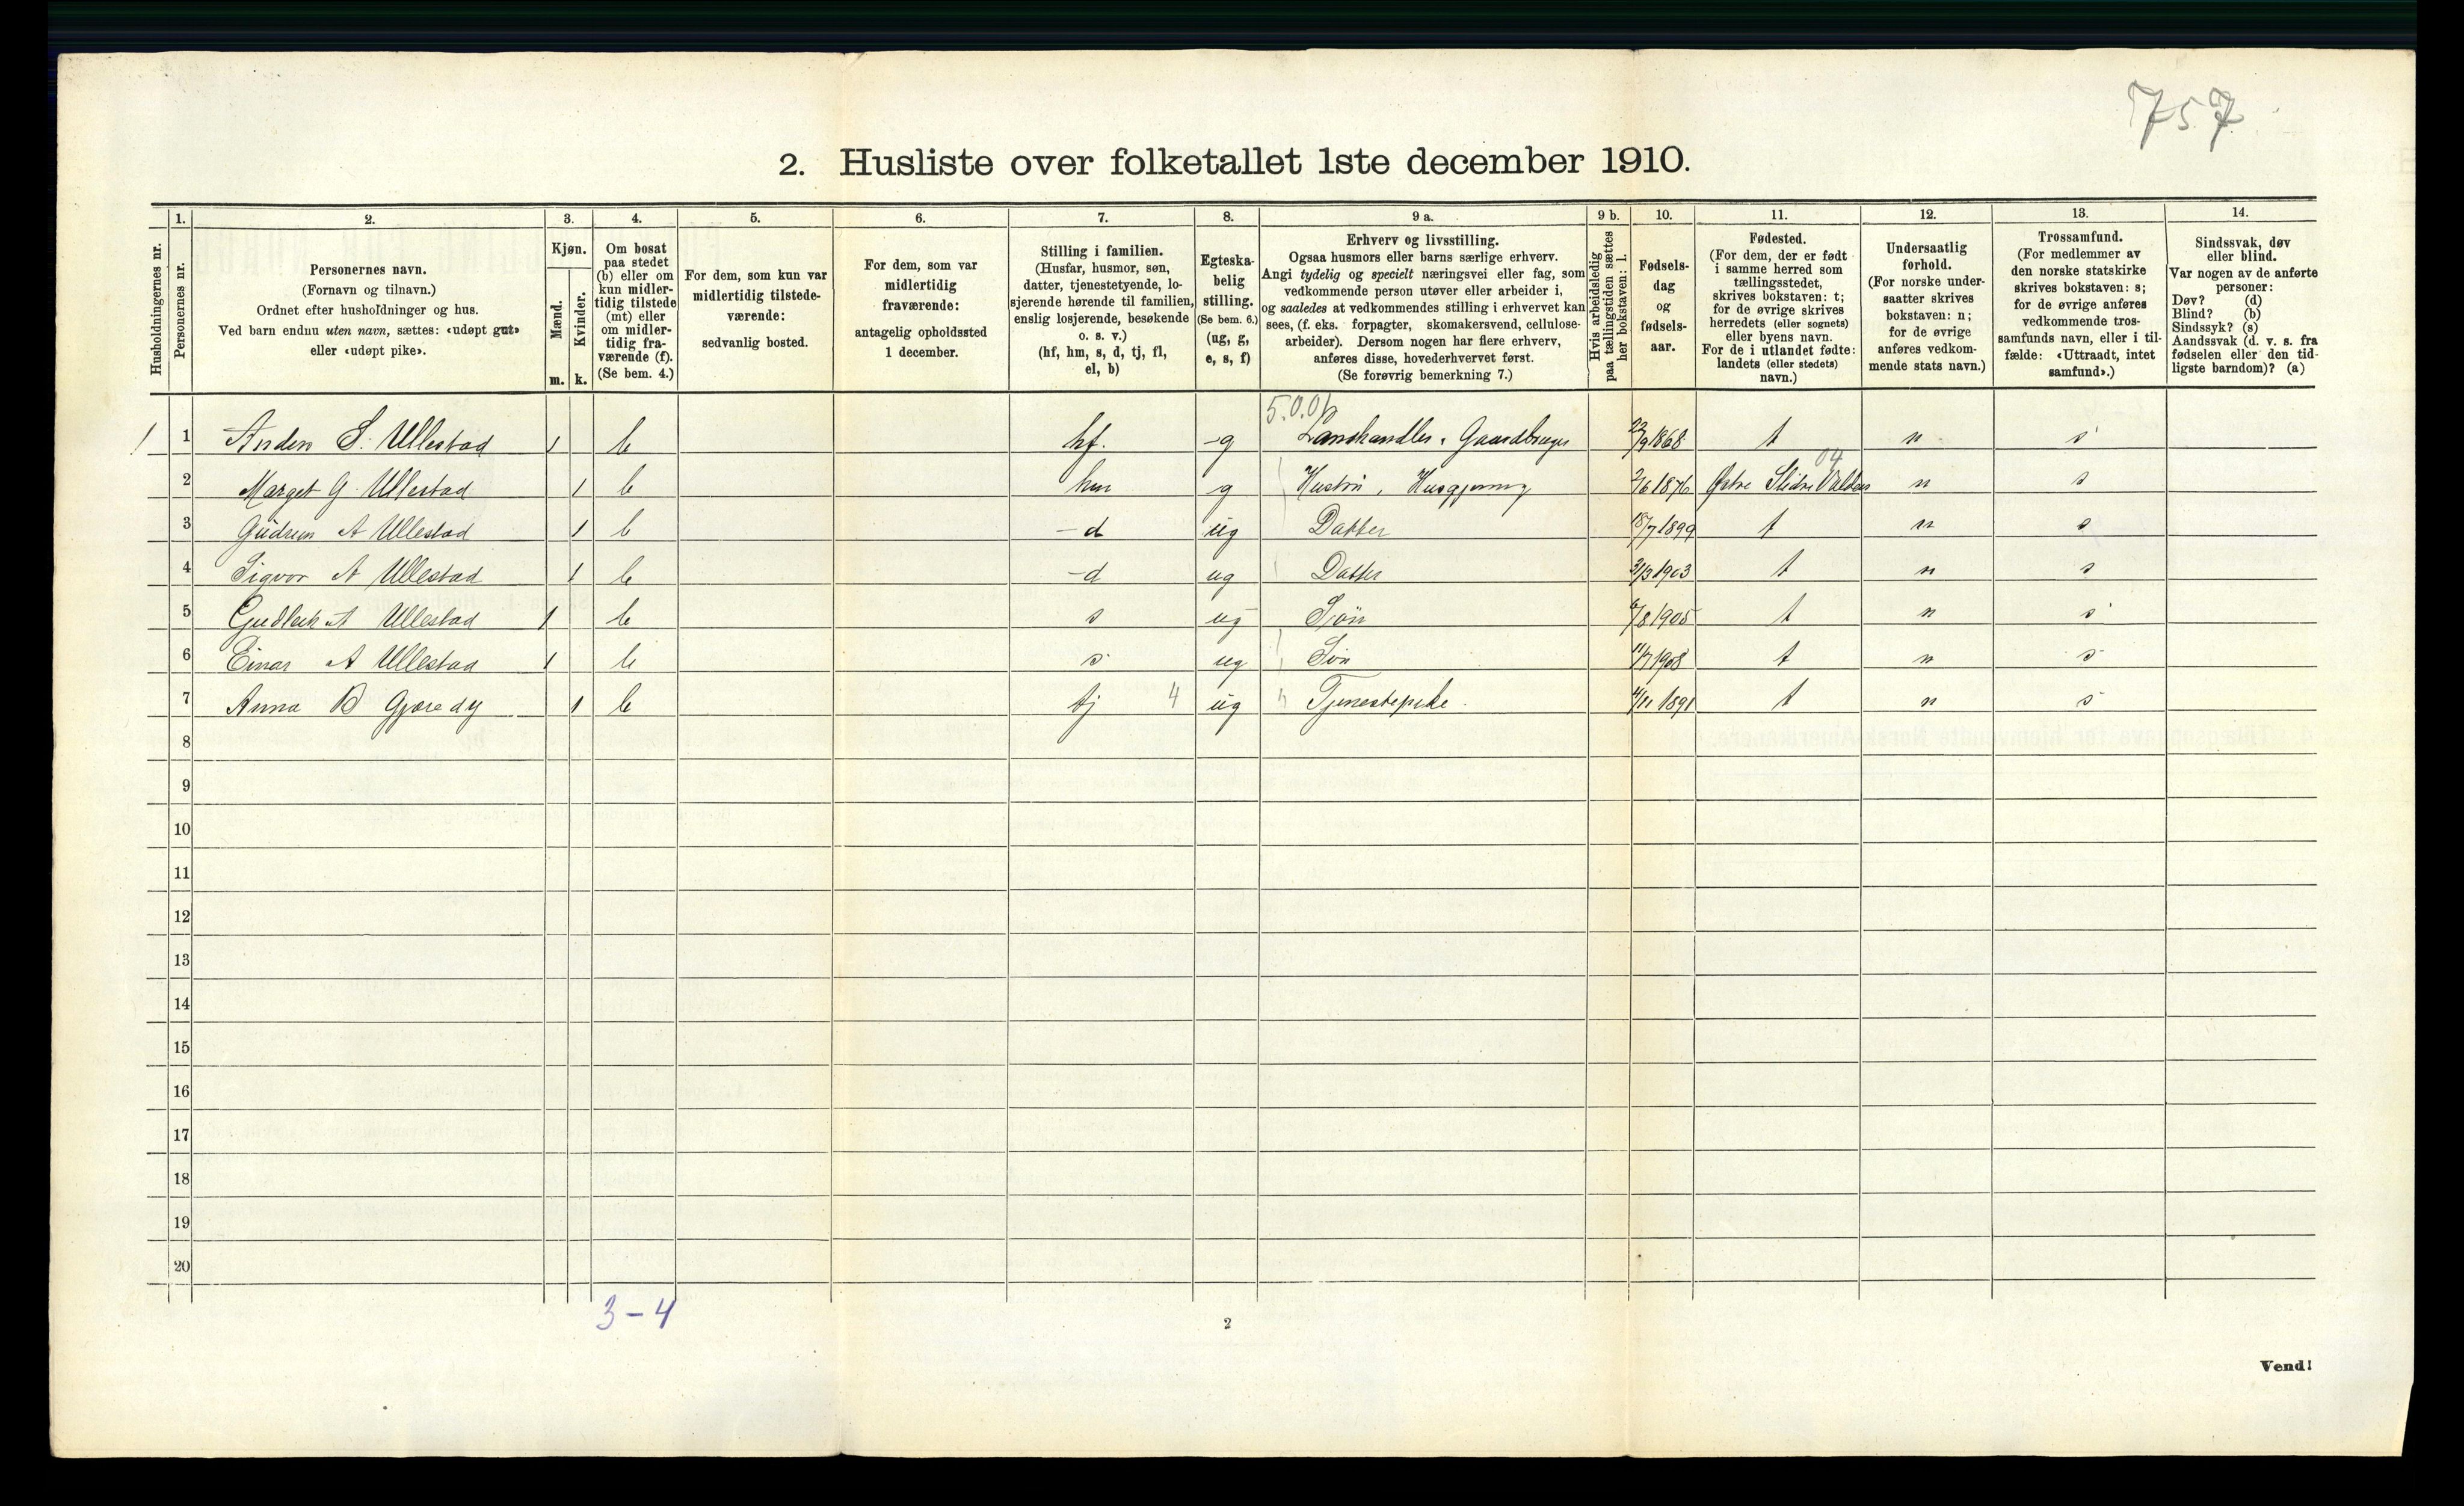 757
2. Husliste over folketallet 1ste december 1910.
Husholdningernes nr.
1.
Personernes nr.
2.
Personernes navn.
(Fornavn og tilnavn.)
Ordnet efter husholdninger og hus.
Ved barn endnu uten navn, sættes: «udøpt gut»
eller «udøpt pike».
3.
Kjøn.
Mænd.
Kvinder.
m. k.
4.
Om bosat
paa stedet
(b) eller om
kun midler-
tidig tilstede
(mt) eller
om midler-
tidig fra-
værende (f).
(Se bem. 4.)
5.
For dem, som kun var
midlertidig tilstede-
værende:
sedvanlig bosted.
6.
For dem, som var
midlertidig
fraværende:
antagelig opholdssted
1 december.
7.
Stilling i familien.
(Husfar, husmor, søn,
datter, tjenestetyende, lo-
sjerende hørende til familien,
enslig losjerende, besøkende
o. s. v.)
(hf, hm, s, d, tj, fl,
el, b)
8.
Egteska-
belig
stilling.
(Se bem. 6.)
(ug, g,
e, s, f)
9 a.
Erhverv og livsstilling.
Ogsaa husmors eller barns særlige erhverv.
Angi tydelig og specielt næringsvei eller fag, som
vedkommende person utøver eller arbeider i,
og saaledes at vedkommendes stilling i erhvervet kan
sees, (f. eks. forpagter, skomakersvend, cellulose-
arbeider). Dersom nogen har flere erhverv,
anføres disse, hovederhvervet først.
(Se forøvrig bemerkning 7.)
9 b.
Hvis arbeidsledig
paa tællingstiden sættes
her bokstaven: l.
10.
Fødsels-
dag
og
fødsels-
aar.
11.
Fødested.
(For dem, der er født
i samme herred som
tællingsstedet,
skrives bokstaven: t;
for de øvrige skrives
herredets (eller sognets)
eller byens navn.
For de i utlandet fødte:
landets (eller stedets)
navn.)
12.
Undersaatlig
forhold.
(For norske under-
saatter skrives
bokstaven: n;
for de øvrige
anføres vedkom-
mende stats navn.)
13.
Trossamfund.
(For medlemmer av
den norske statskirke
skrives bokstaven: s;
for de øvrige anføres
vedkommende tros-
samfunds navn, eller i til-
fælde: «Uttraadt, intet
samfund».)
14.
Sindssvak, døv
eller blind.
Var nogen av de anførte
personer:
Døv? (d)
Blind? (b)
Sindssyk? (s)
Aandssvak (d. v. s. fra
fødselen eller den tid-
ligste barndom)? (a)
5.0.0
1 1 Anders S. Ullestad 1 b hf. g Landhandler, Gaardbruger 22/9 1868 t n s
04
2 Marget G Ullestad 1 b hm g Hustru, Husgjerning 2/6 1876 Østre Slidre Valders n s
3 Gudrun A Ullestad 1 b d ug Datter 18/7 1899 t n s
4 Sigvor A Ullestad 1 b d ug Datter 3/3 1903 t n s
5 Gudleik A Ullestad 1 b s ug Søn 6/8 1905 t n s
6 Einar A Ullestad 1 b s ug Søn 11/7 1908 t n s
7 Anna B Gjøre 1 b tj 4 ug Tjenestepike 4/11 1891 t n s
8
9
10
11
12
13
14
15
16
17
18
19
20
3-4
2
Vend!